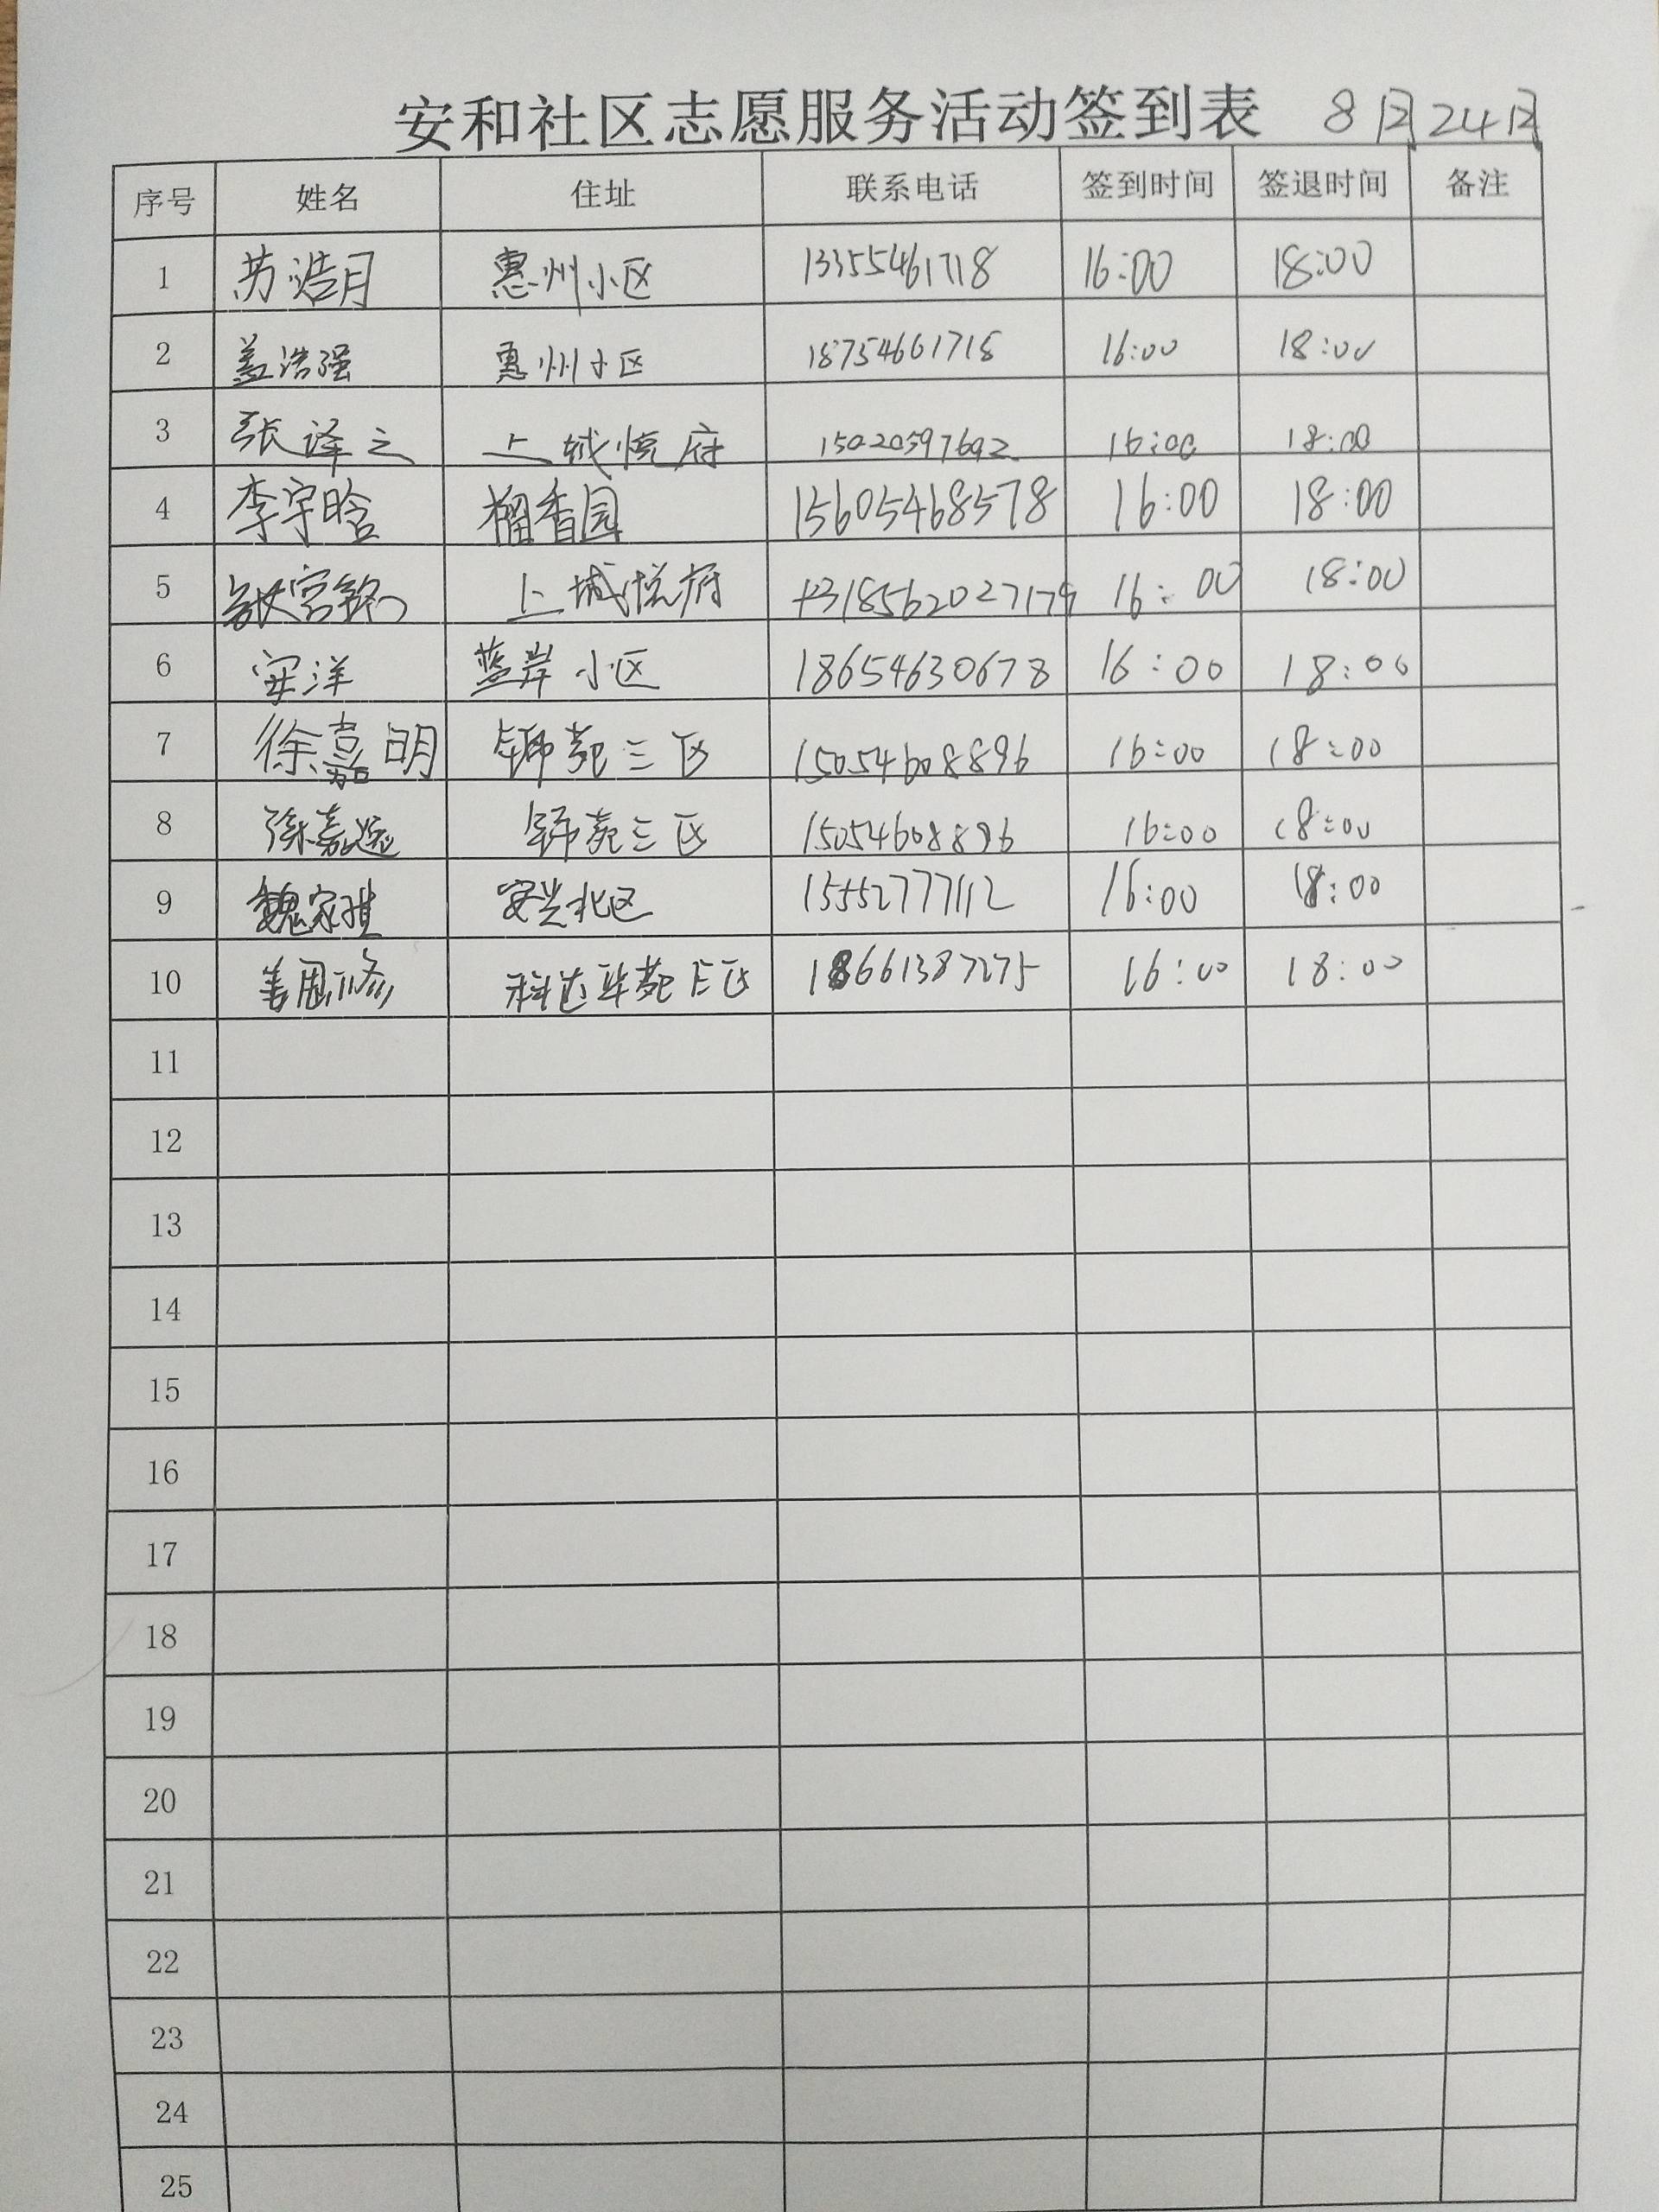 安和社区志愿服务活动签到表 8月24日
序号 姓名 住址 联系电话 签到时间 签退时间 备注
1 苏浩月 惠州小区 13355461718 16:00 18:00
2 盖浩强 惠州小区 18754661718 16:00 18:00
3 张译之 上城悦府 15020597692 16:00 18:00
4 李宇晗 榴香园 15605468578 16:00 18:00
5 上城悦府 16:00 18:00
6 安洋 蓝岸小区 18654630678 16:00 18:00
7 徐嘉明 锦苑三区 15054608896 16:00 18:00
8 徐嘉遥 锦苑三区 15054608896 16:00 18:00
9 魏家雅 安兴北区 15552777112 16:00 18:00
10 18661387275 16:00 18:00
11
12
13
14
15
16
17
18
19
20
21
22
23
24
25